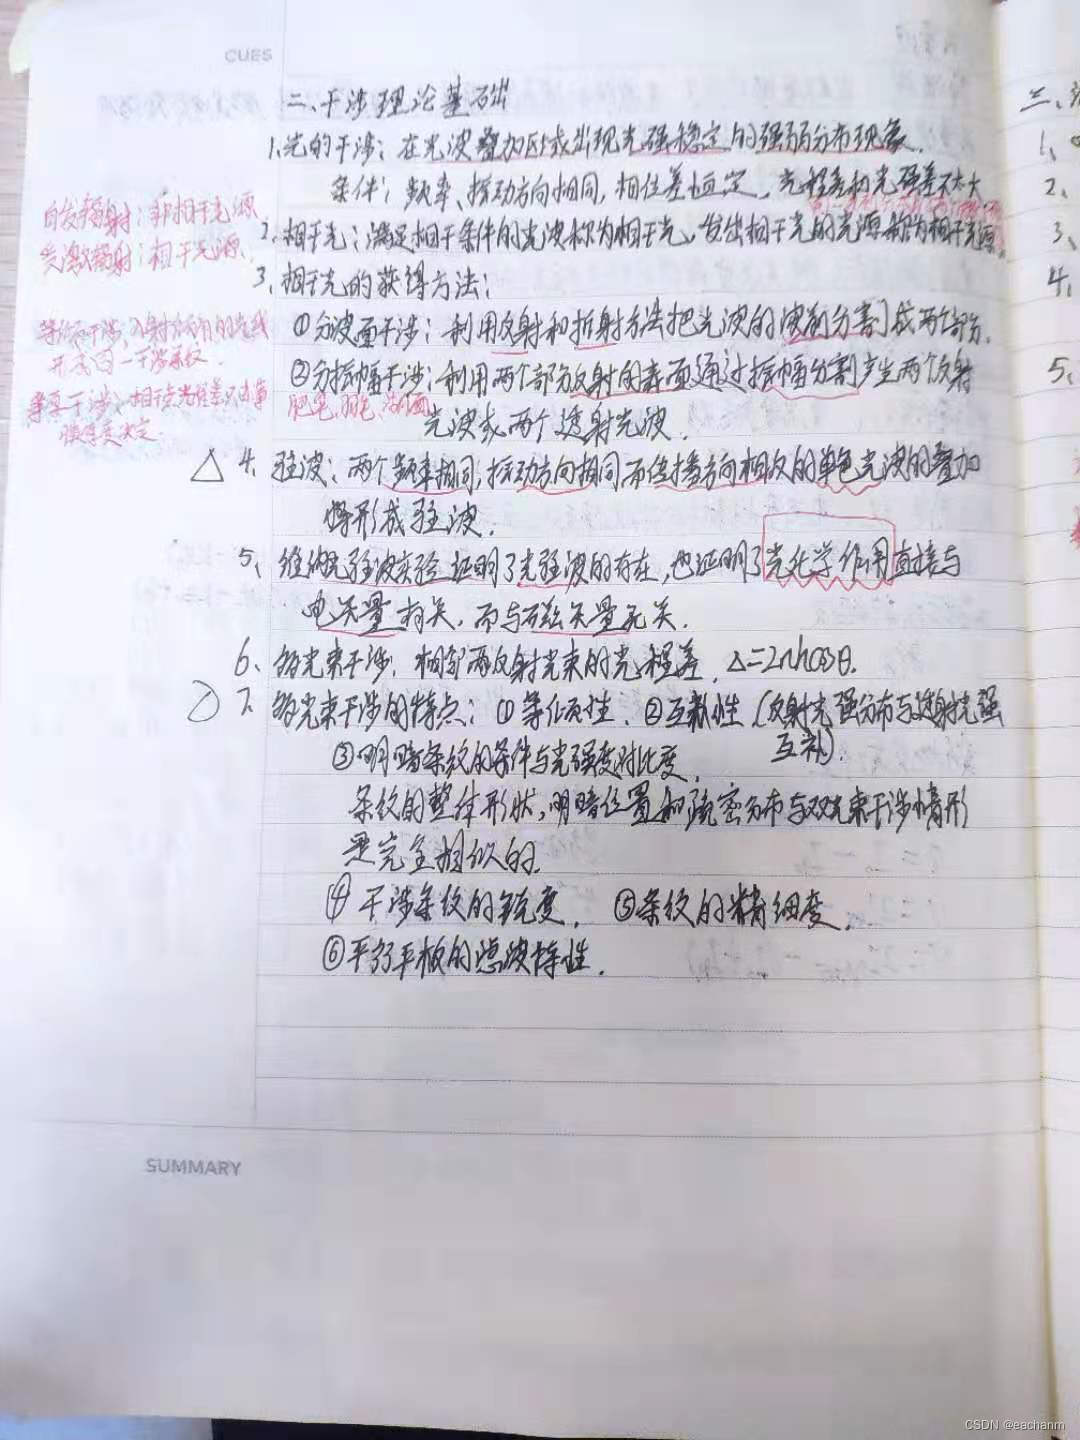 CUES
二、干涉理论基础
1、光的干涉：在光波叠加区域出现光强稳定的强弱分布现象.
条件：频率、振动方向相同，相位差恒定，光程差和光强差不太大.
自发辐射：非相干光源
受激辐射：相干光源.
2、相干光：满足相干条件的光波称为相干光，发出相干光的光源称为相干光源.
3、相干光的获得方法：
①分波面干涉：利用反射和折射方法把光波的波面分割成两个部分.
等倾干涉：入射角相同的光线
形成同一干涉条纹.
②分振幅干涉：利用两个部分反射的表面通过振幅分割产生两个反射
光波或两个透射光波.
肥皂
等厚干涉：相干光光程差只由薄
膜厚度决定.
△ 4、驻波：两个频率相同，振动方向相同而传播方向相反的单色光波的叠加
将形成驻波.
5、维纳光驻波实验证明了光驻波的存在，也证明了光化学作用直接与
电矢量有关，而与磁矢量无关.
6、多光束干涉：相邻两反射光束的光程差，Δ=2nhcosθ.
7、多光束干涉的特点：①等倾性、②互补性（反射光强分布与透射光强
互补）.
③明暗条纹的条件与光强度对比度.
条纹的整体形状，明暗位置和疏密分布与双光束干涉情形
是完全相似的.
④干涉条纹的锐度. ⑤条纹的精细度.
⑥平行平板的滤波特性.
SUMMARY
三、
1、
2、
3、
4、
5、
CSDN @eachanm